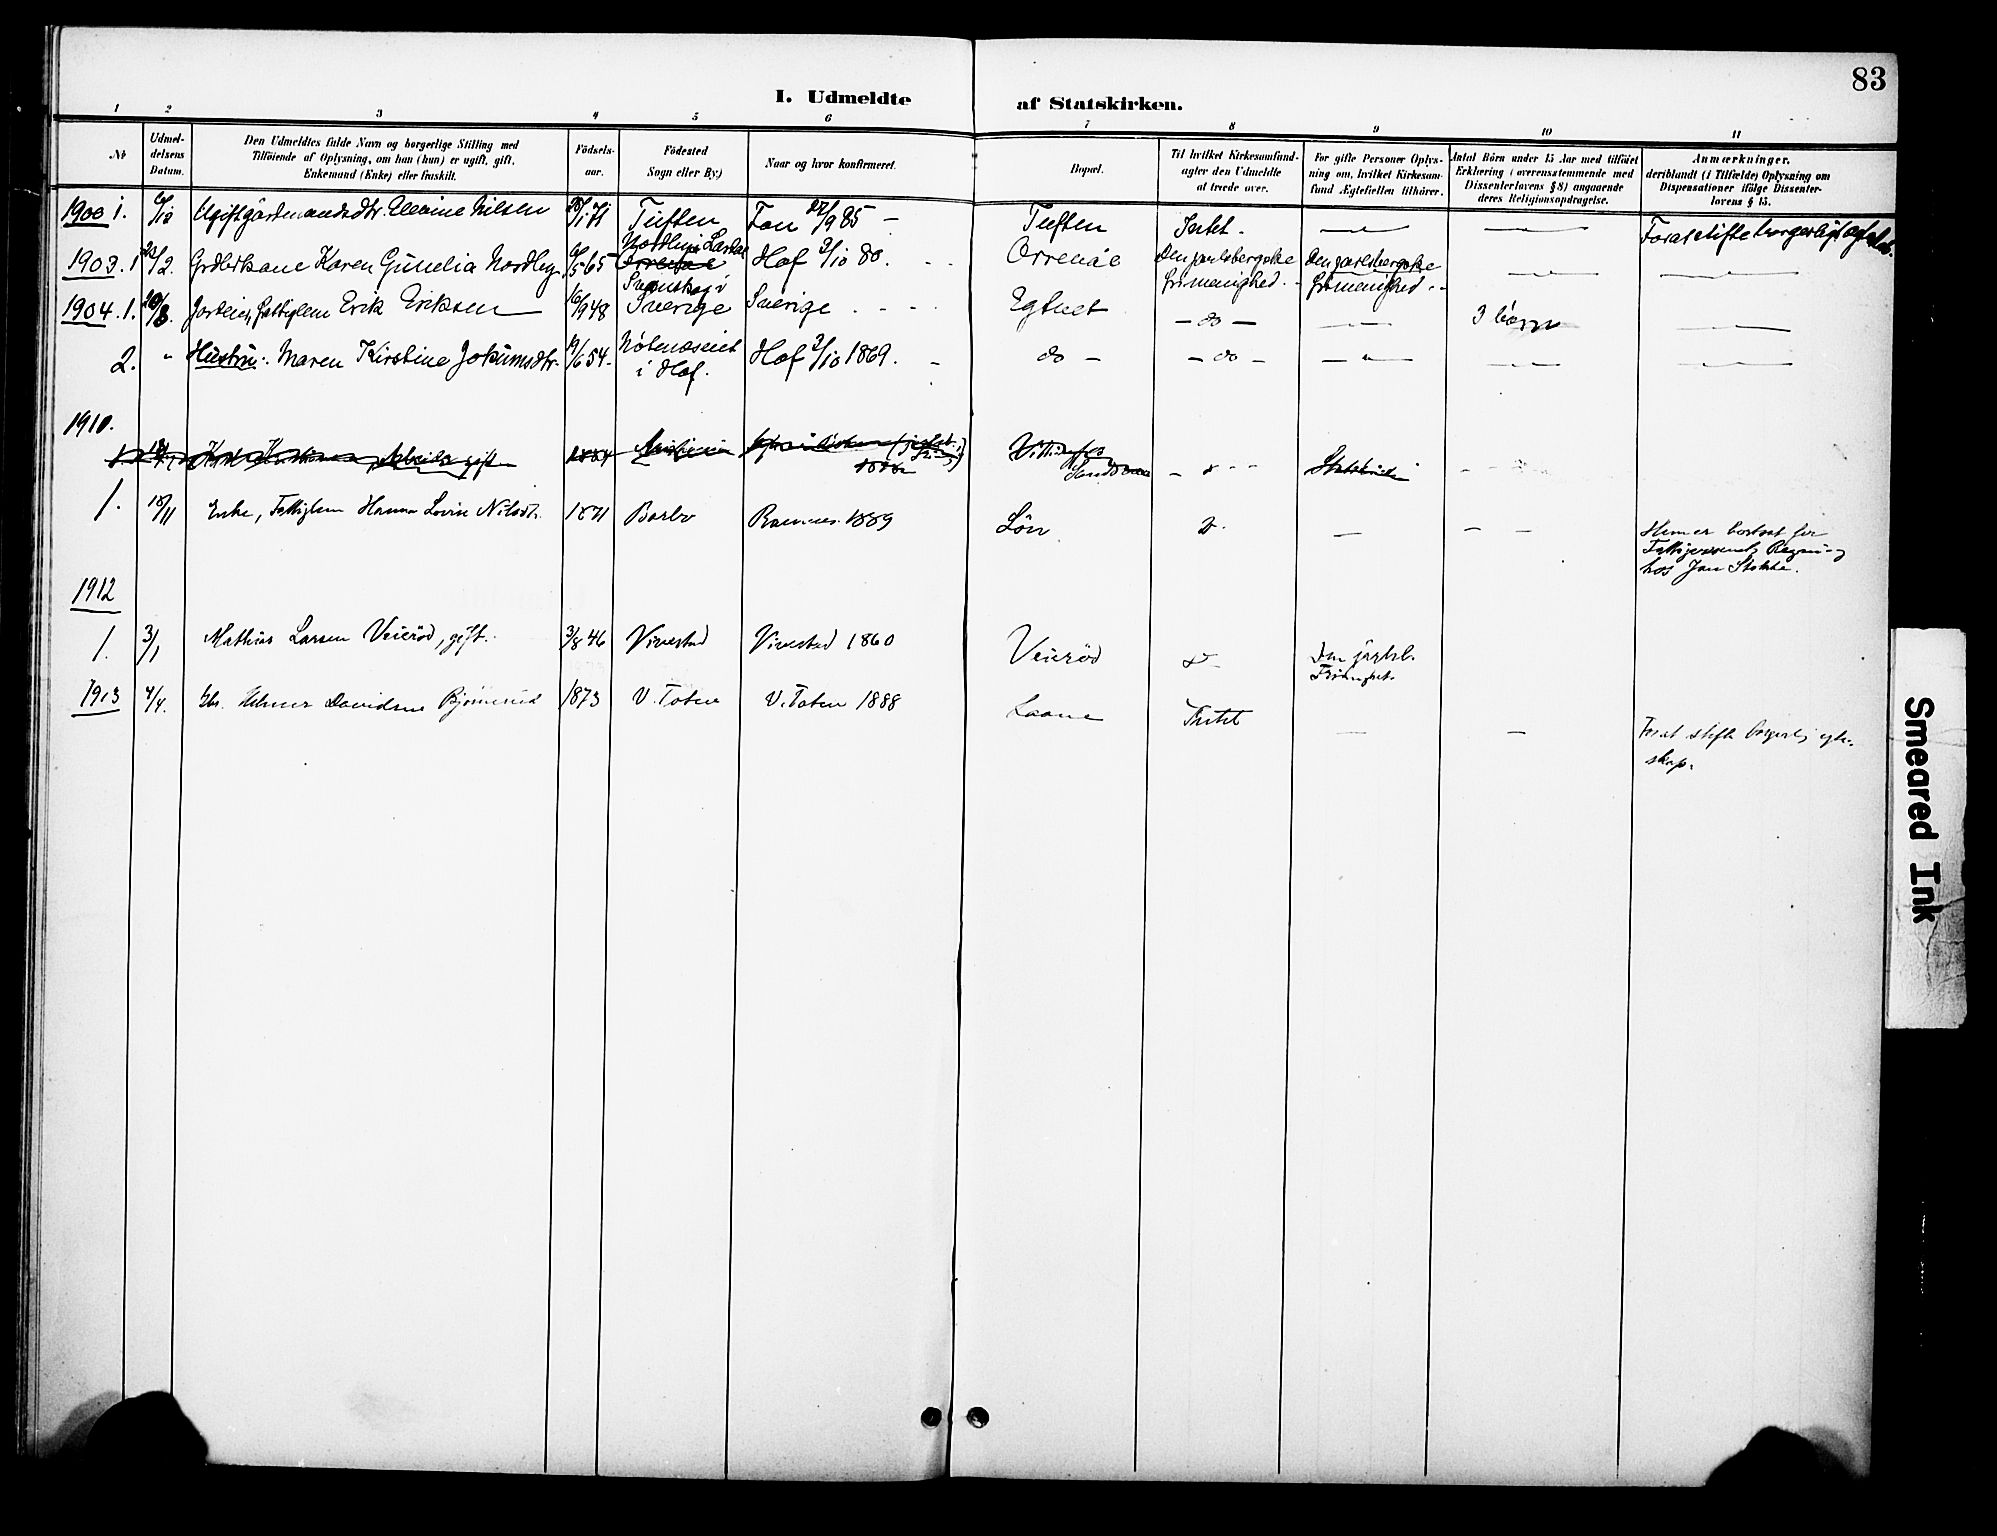 83
I. Udmeldte af Statskirken.
1 2 3 4 5 6 7 8 9 10 11
No
Udmel-
delsens
Datum.
Den Udmeldtes fulde Navn og borgerlige Stilling med
Tilføiende af Oplysning, om han (hun) er ugift, gift,
Enkemand (Enke) eller fraskilt.
Fødsels-
aar.
Fødested
Sogn eller By.)
Naar og hvor konfirmeret.
Bopæl.
Til hvilket Kirkesamfund
agter den Udmeldte
at træde over.
For gifte Personer Oplys-
ning om, hvilket Kirkesam-
fund Ægtefællen tilhører.
Antal Børn under 15 Aar med tilføiet
Erklæring (overensstemmende med
Dissenterlovens § 8) angaaende
deres Religionsopdragelse.
Anmærkninger,
deriblandt (i Tilfælde) Oplysning om
Dispensationer ifølge Dissenter-
lovens § 15.
1900 1. 6/10 Ugift gårdmandsdtr. Elevine Nilsen 28/1 71 Tuften Fon 27/9 85 - Tuften Intet. — — For at stifte borgerligt ægtesk.
Nordbyi Lardal
1903. 1 22/2. Grdbrkone Karen Gunelia Nordbye 9/5 65 Orrenåe Hof 3/10 80. - - Orrenåe Den jarlsbergske Den jarlsbergske — —
frimenighed. - frimenighed. -
Svanskog i
1904. 1. 20/8. Jordeier, fattiglem Erik Eriksen — 16/9 48 Sverige Sverige . - - - Egtvet - do - — 3 børn —
2. " Hustru: Maren Kirstine Jokumsdtr. 19/6 54. Nøtenæseiet Hof 3/10 1869. - do - - do - — — —
i Hof.
1910.
1884 Statskirken
Sandsvær
1. 18/11 Enke, Fattiglem Hanna Lovise Nilsdt. 1871 Barbo Ramnes. 1889 Løn do. — - - Hun er bortsat for
Fattigvæsenets Regning
hos Jan Stokke.
1912
1. 3/1 Mathias Larsen Veierød, gift. 3/8 46 Vivestad Vivestad 1860 Veierød do- Den jarlsb.
Frimenighet.
1913 4/4. Hilmar Davidsen Bjørnerud 1873 V. Toten V. Toten 1888 Laane Intet — — For at stifte borgerlig egte-
skap.
Smeared Ink